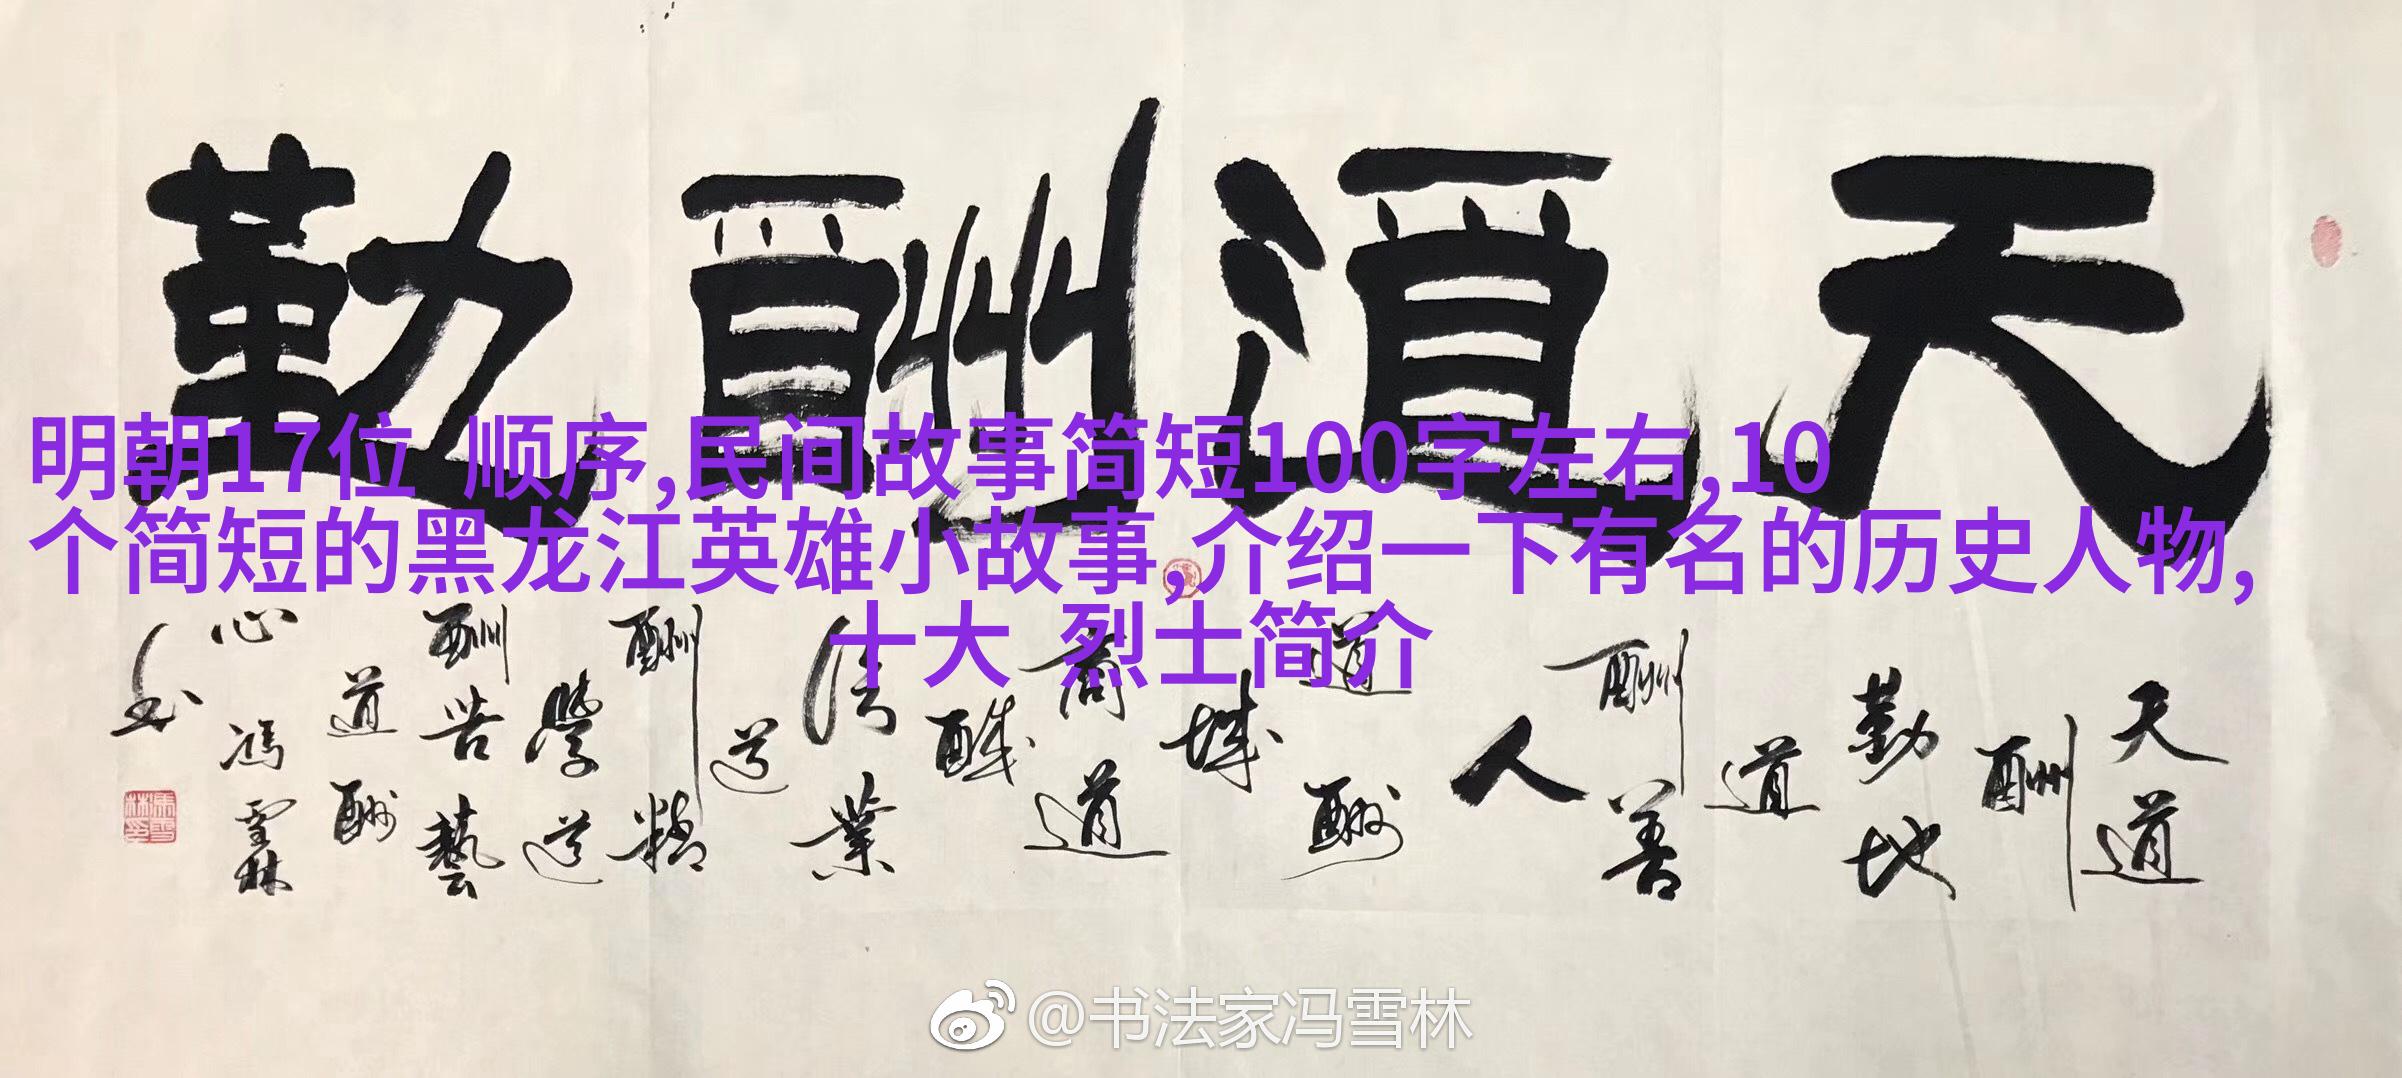 天道酬勤
明朝17位 顺序,民间故事简短100字左右,10
个简短的黑龙江英雄小故事,介绍一下有名的历史人物,
十大 烈士简介
天道
酬
勤地
道
酬善
人
道酬
城
商道
酬
信業
道
酬精
學道
酬苦藝
道酬
心馮雪林
@书法家冯雪林